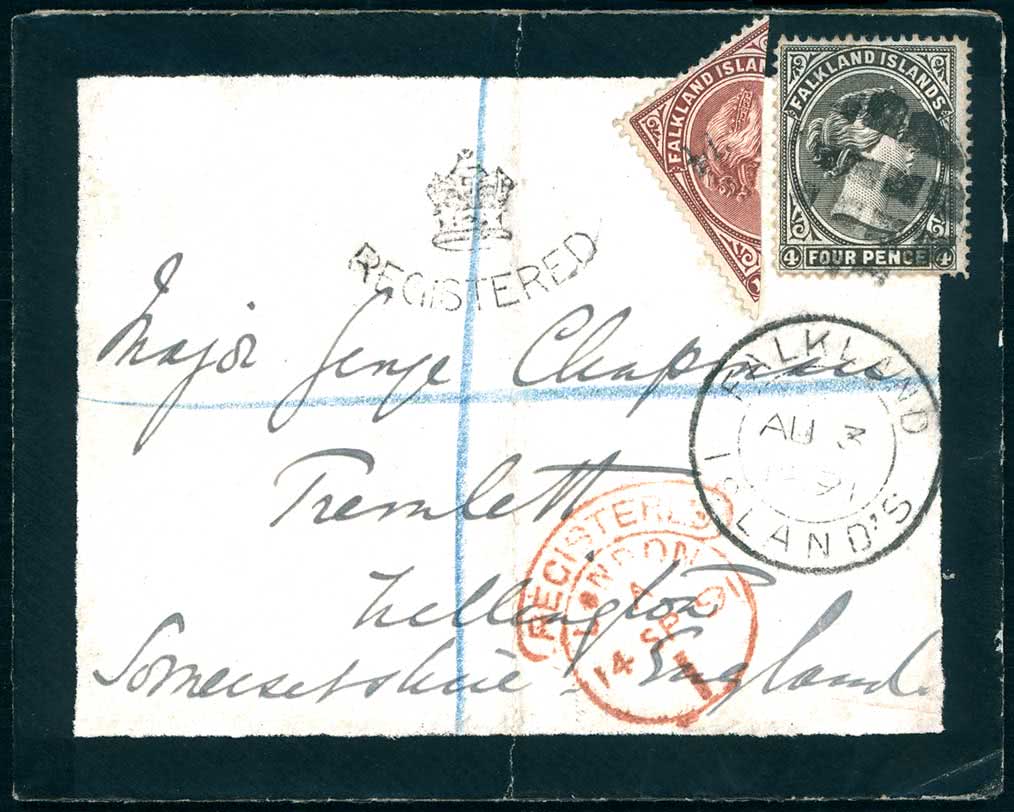 FALKLAND ISLAN
FALKLAND ISLANDS
4 FOUR PENCE 4
REGISTERED
Major George Chapman
FALKLAND ISLAND'S
AU 3
91
Tremlett
REGISTERED
LONDON
A
14 SP 91
Wellington
Somersetshire England